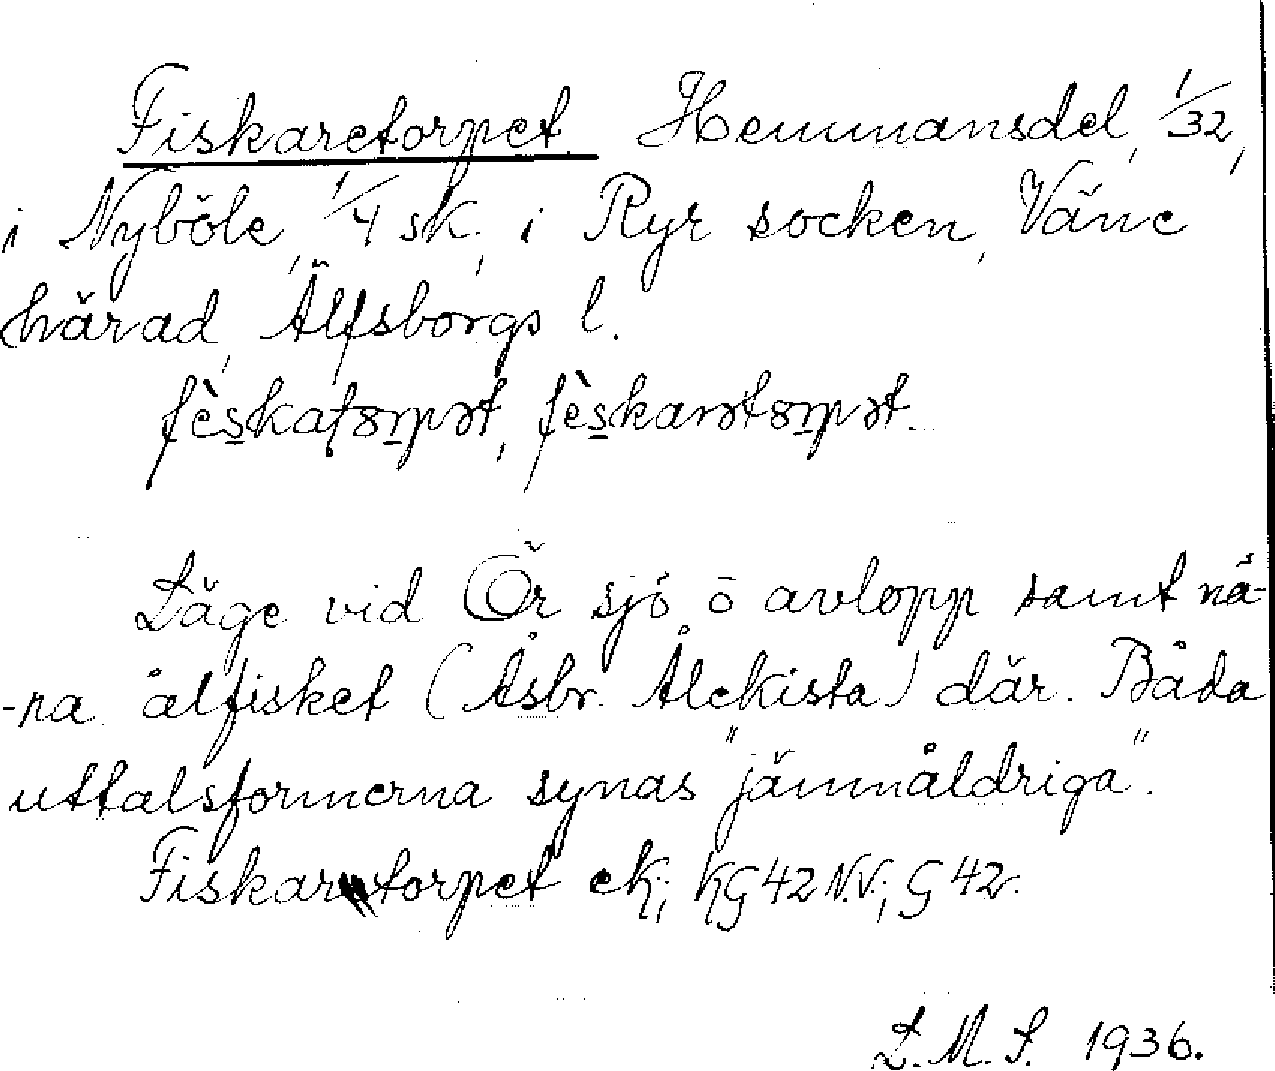 Fiskaretorpet Hemmansdel, 1/32,
i Nyböle, 1/4 sk, i Ryr socken, Väne
härad, Älfsborgs l.
Läge vid Ör sjö ö avlopp samt nä-
-ra ålfisket (Åsbr. Ålekista) där. Båda
uttalsformerna synas "jämnåldriga".
Fiskaretorpet ek; KG 42 N.V.; G 42.
L. M. S. 1936.